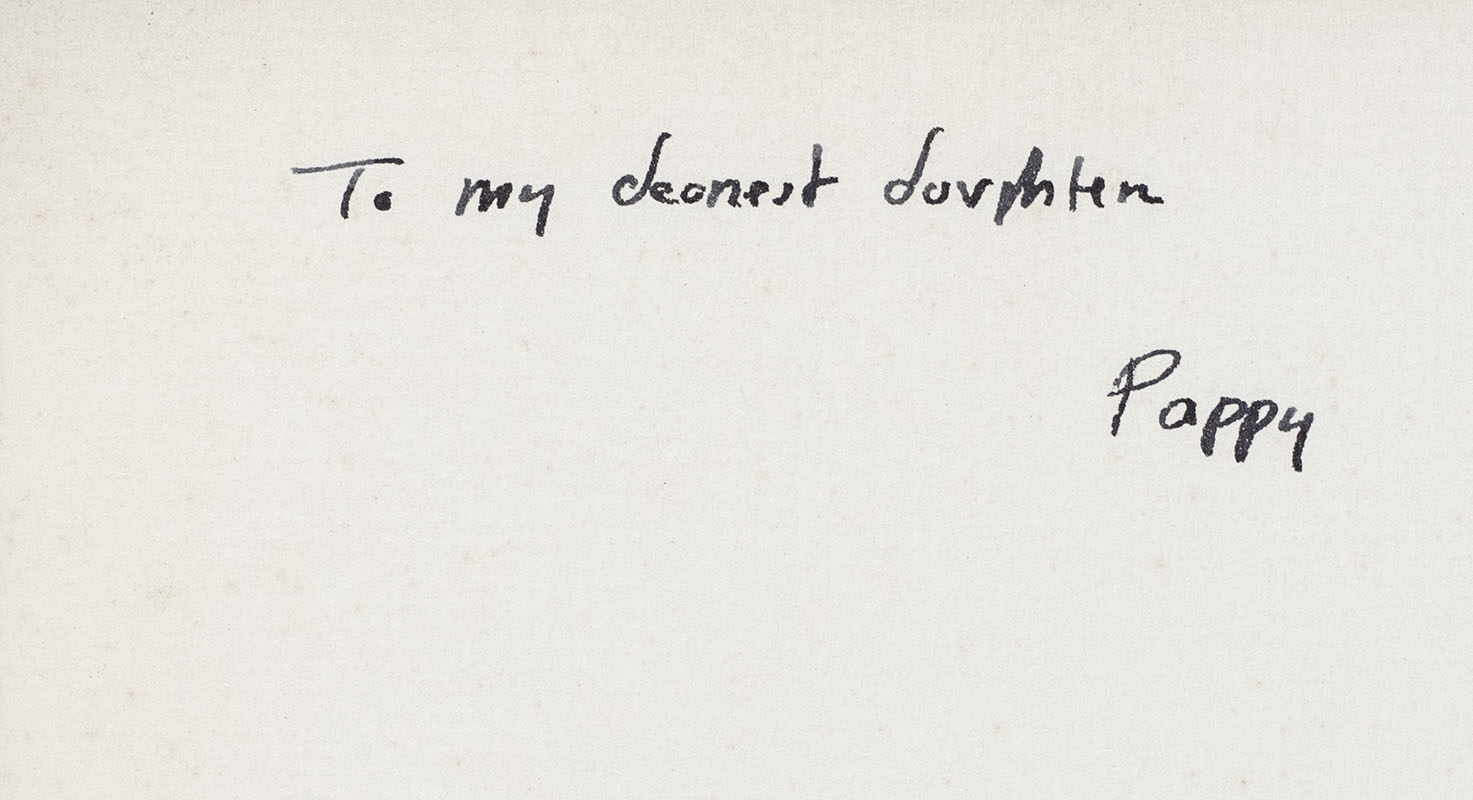 To my dearest daughter
Pappy